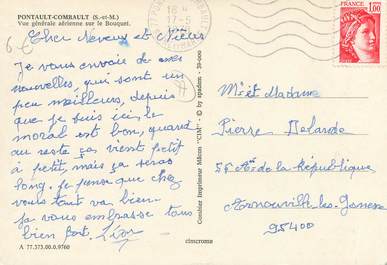 PONTAULT-COMBAULT (S.-et-M.)
Vue générale aérienne sur le Bouquet.
Cher Neveux et Nièces
Je vous envoie de mes
nouvelles, qui sont un
peu meilleurs, depuis
que je suis ici, le
moral est bon, quand
au reste ça vient petit
à petit, mais ça seras
long. Je pense que chez
vous tout va bien.
Je vous embrasse tous
bien fort.
A 77.373.00.0.9760
Combier Imprimeur Mâcon "CIM" © by spadem - 39-000
cimcrome
17-5
1,00
Mr et Madame
Pierre Delande
de la République
Arnouville les Gonesse
95400